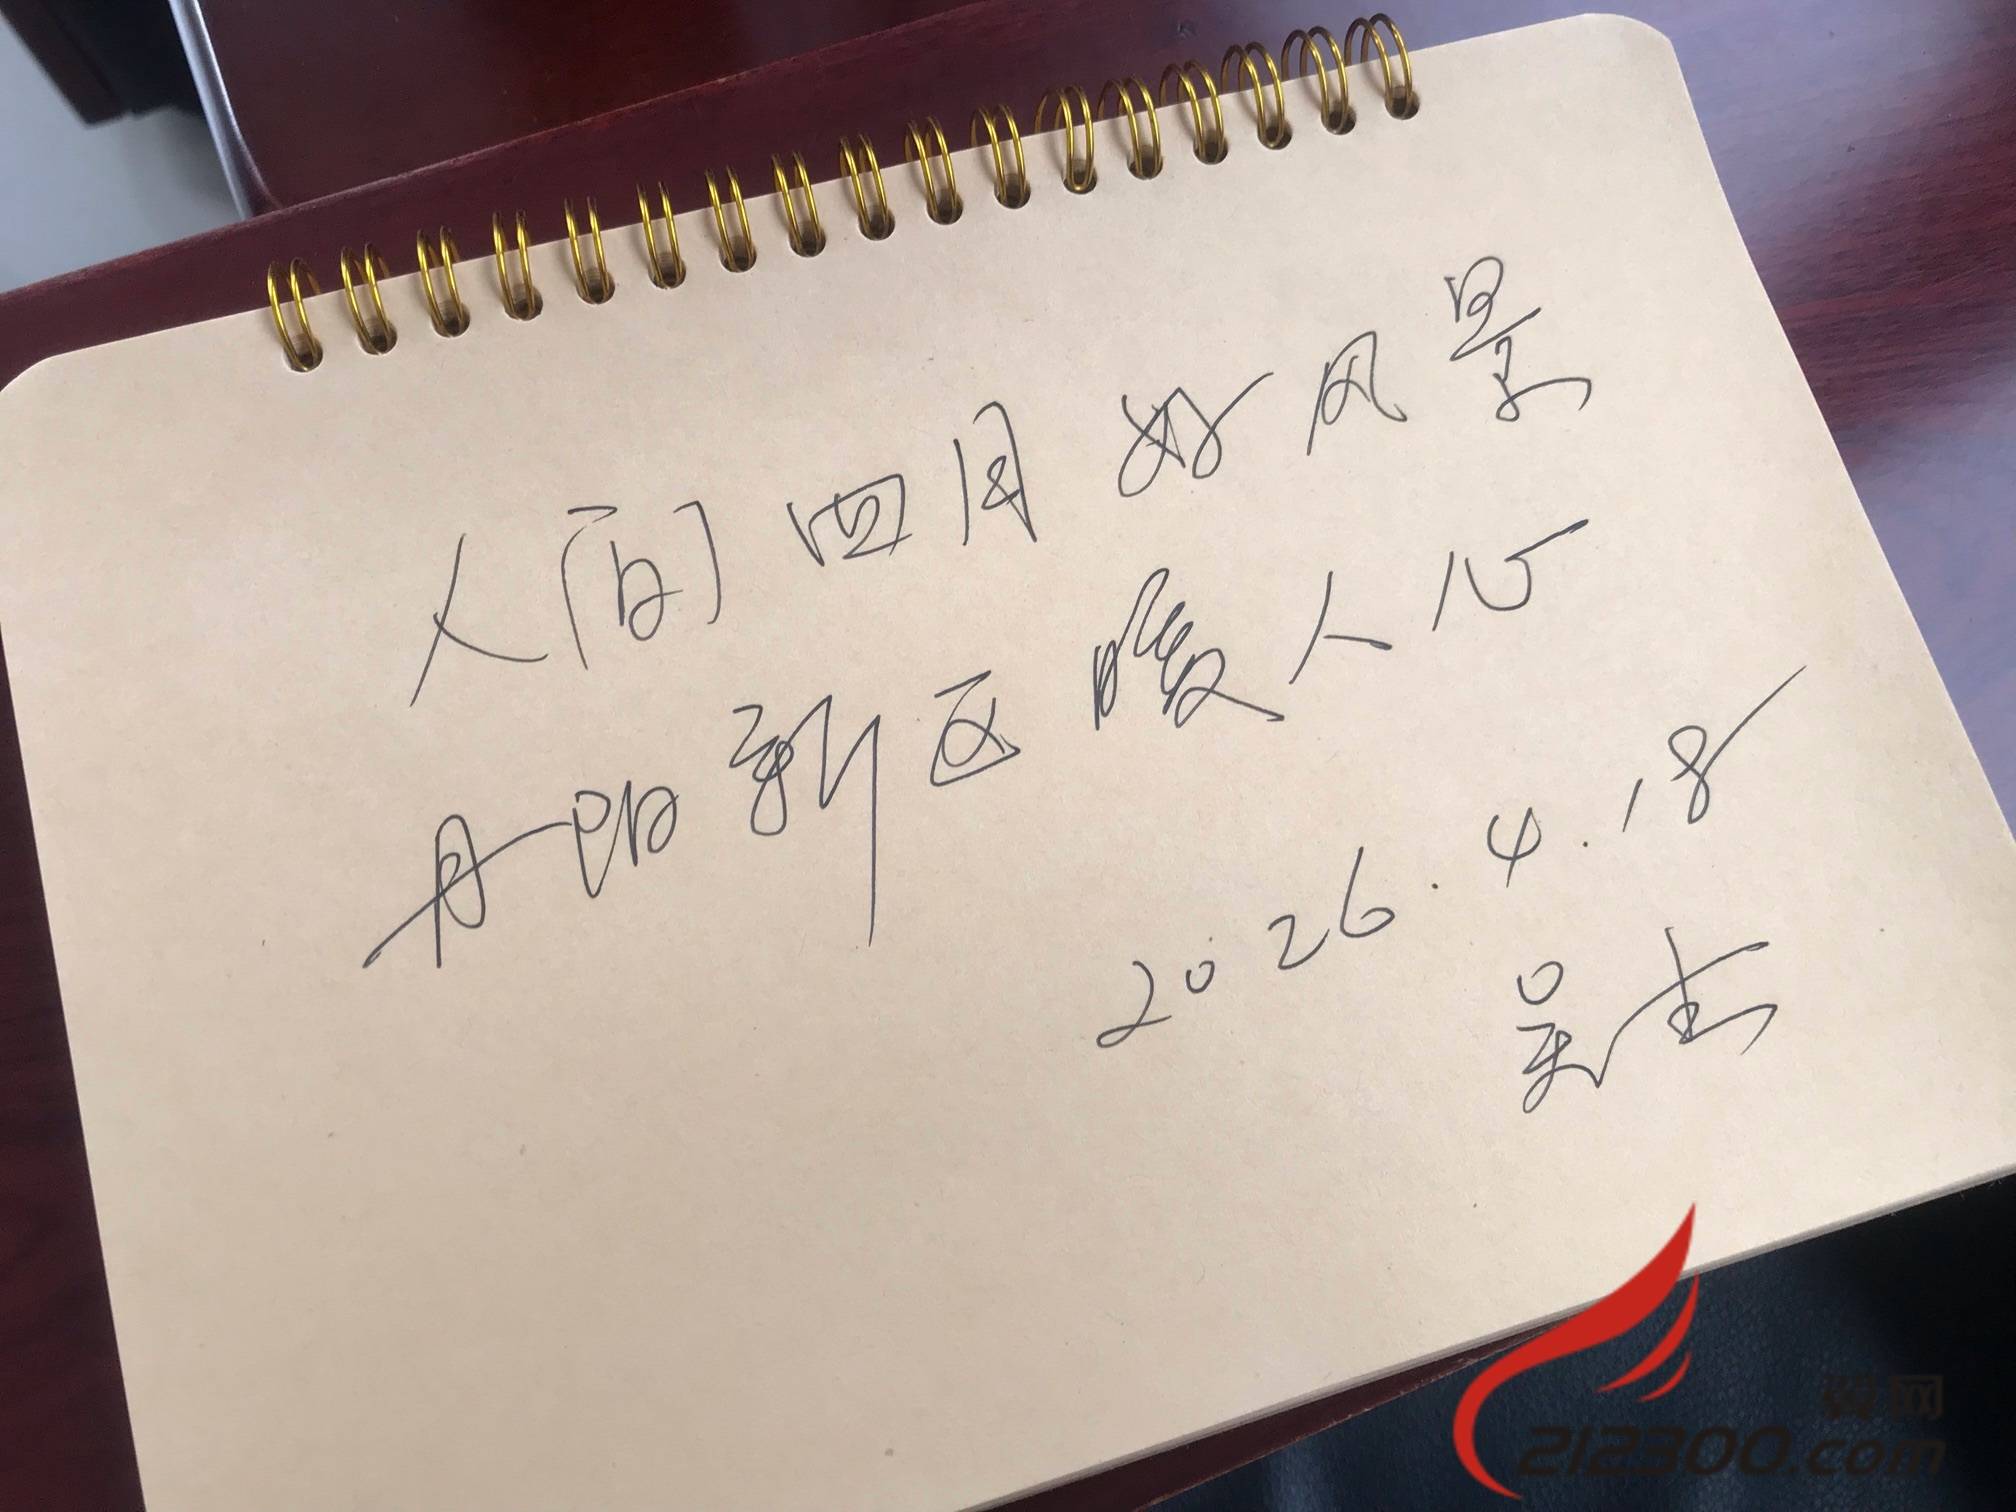 人间四月好风景
丹阳新区暖人心
2026.4.18
翼网
212300.com